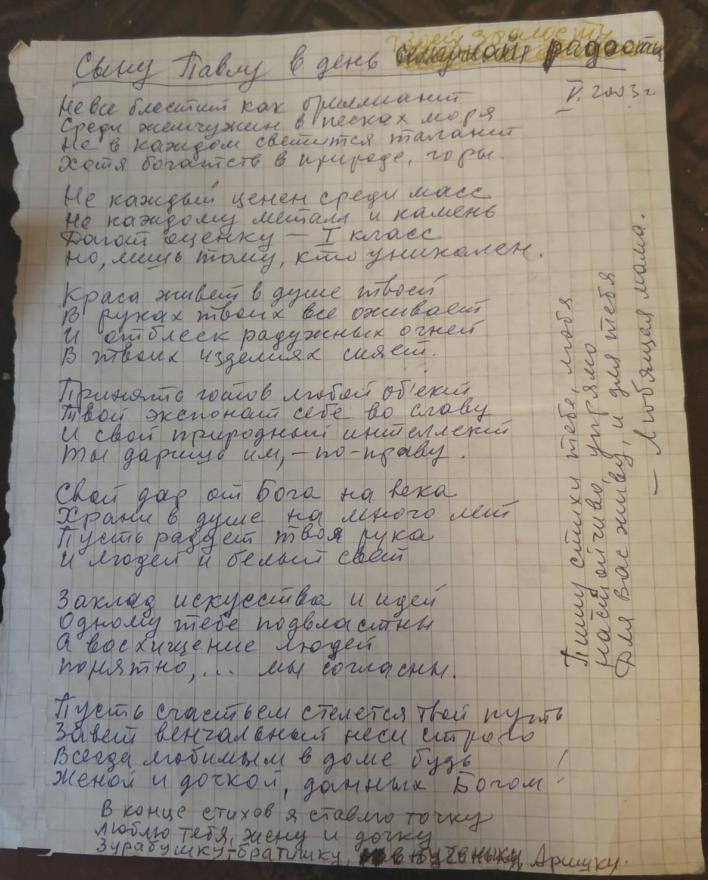 твоей зрелости
Сыну Павлу в день радости
V. 2003 г.
Не все блестит как бриллиант
Среди жемчужин в песках моря
Не в каждом светится талант
Хотя богатств в природе, горы.
Не каждый ценен среди масс
Не каждому металл и камень
Дагот оценку – I класс
Но, лишь тому, кто уникален.
Краса живет в душе твоей
В руках твоих все оживает
И отблеск радужных огней
В твоих изделиях сияет.
Принять готов любой об'ект
Твой экспонат себе во славу
И свой природный интеллект
Ты даришь им, – по-праву.
Свой дар от Бога на века
Храни в душе на много лет
Пусть радует твоя рука
И людей и белый свет
Заклад искусства и идей
Одному тебе подвластны
А восхищение людей
понятно,... мы согласны.
Пусть счастьем стелется твой путь
Завет венчальный неси строго
Всегда любимым в доме будь
Женой и дочкой, данных Богом!
В конце стихов я ставлю точку
люблю тебя, жену и дочку
Зурабушку-братишку, Аришку.
Пишу стихи тебе, любя
настойчиво, упрямо
Для Вас живу, и для тебя
– Любящая мама.